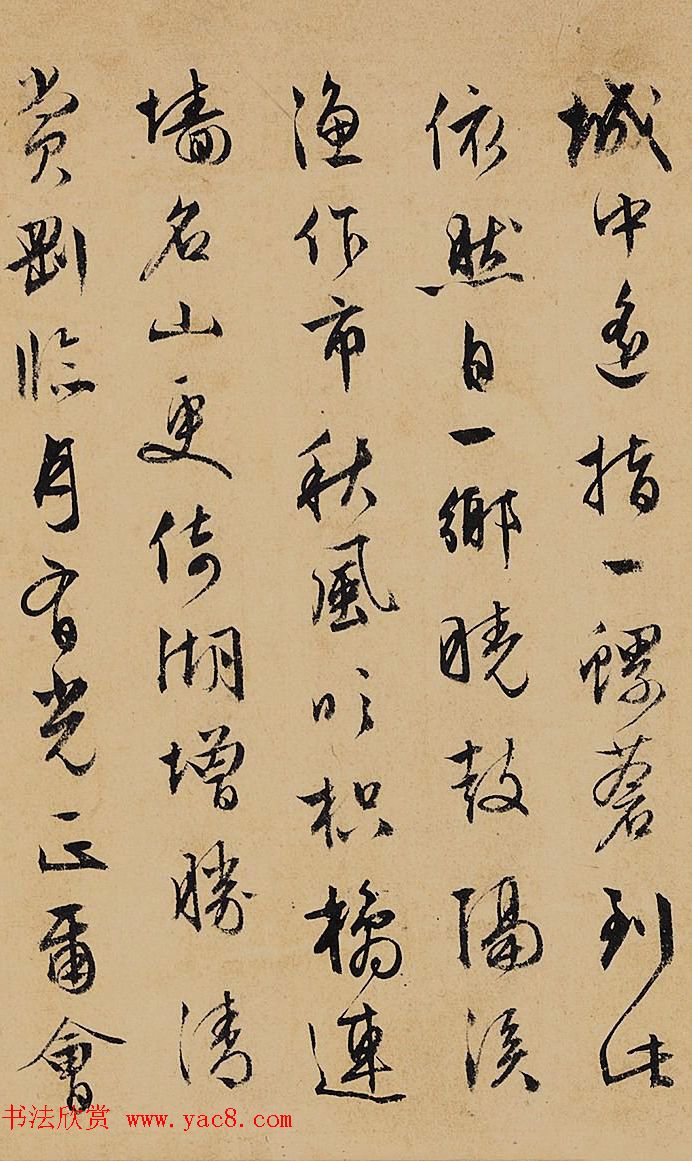 城中遙指一螺蒼到此
依然自一鄉曉鼓隔溪
漁作市秋風吹枳橘連
墻名山更倚湖增勝清
賞剛臨月有光正爾會
书法欣赏 www.yac8.com